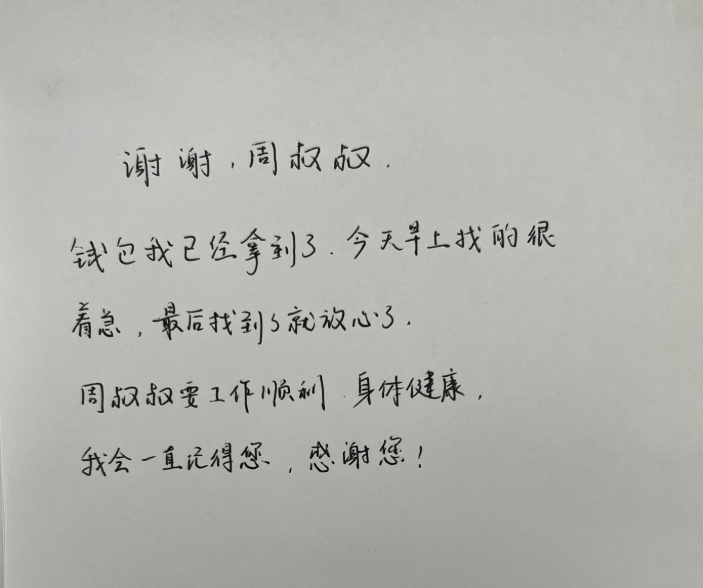 谢谢，周叔叔．
钱包我已经拿到了．今天早上找的很
着急，最后找到了就放心了．
周叔叔要工作顺利．身体健康，
我会一直记得您，感谢您！